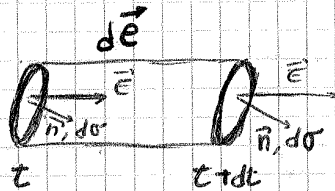 de⃗
ε⃗ ε⃗
n⃗, dσ n⃗, dσ
t t+dt